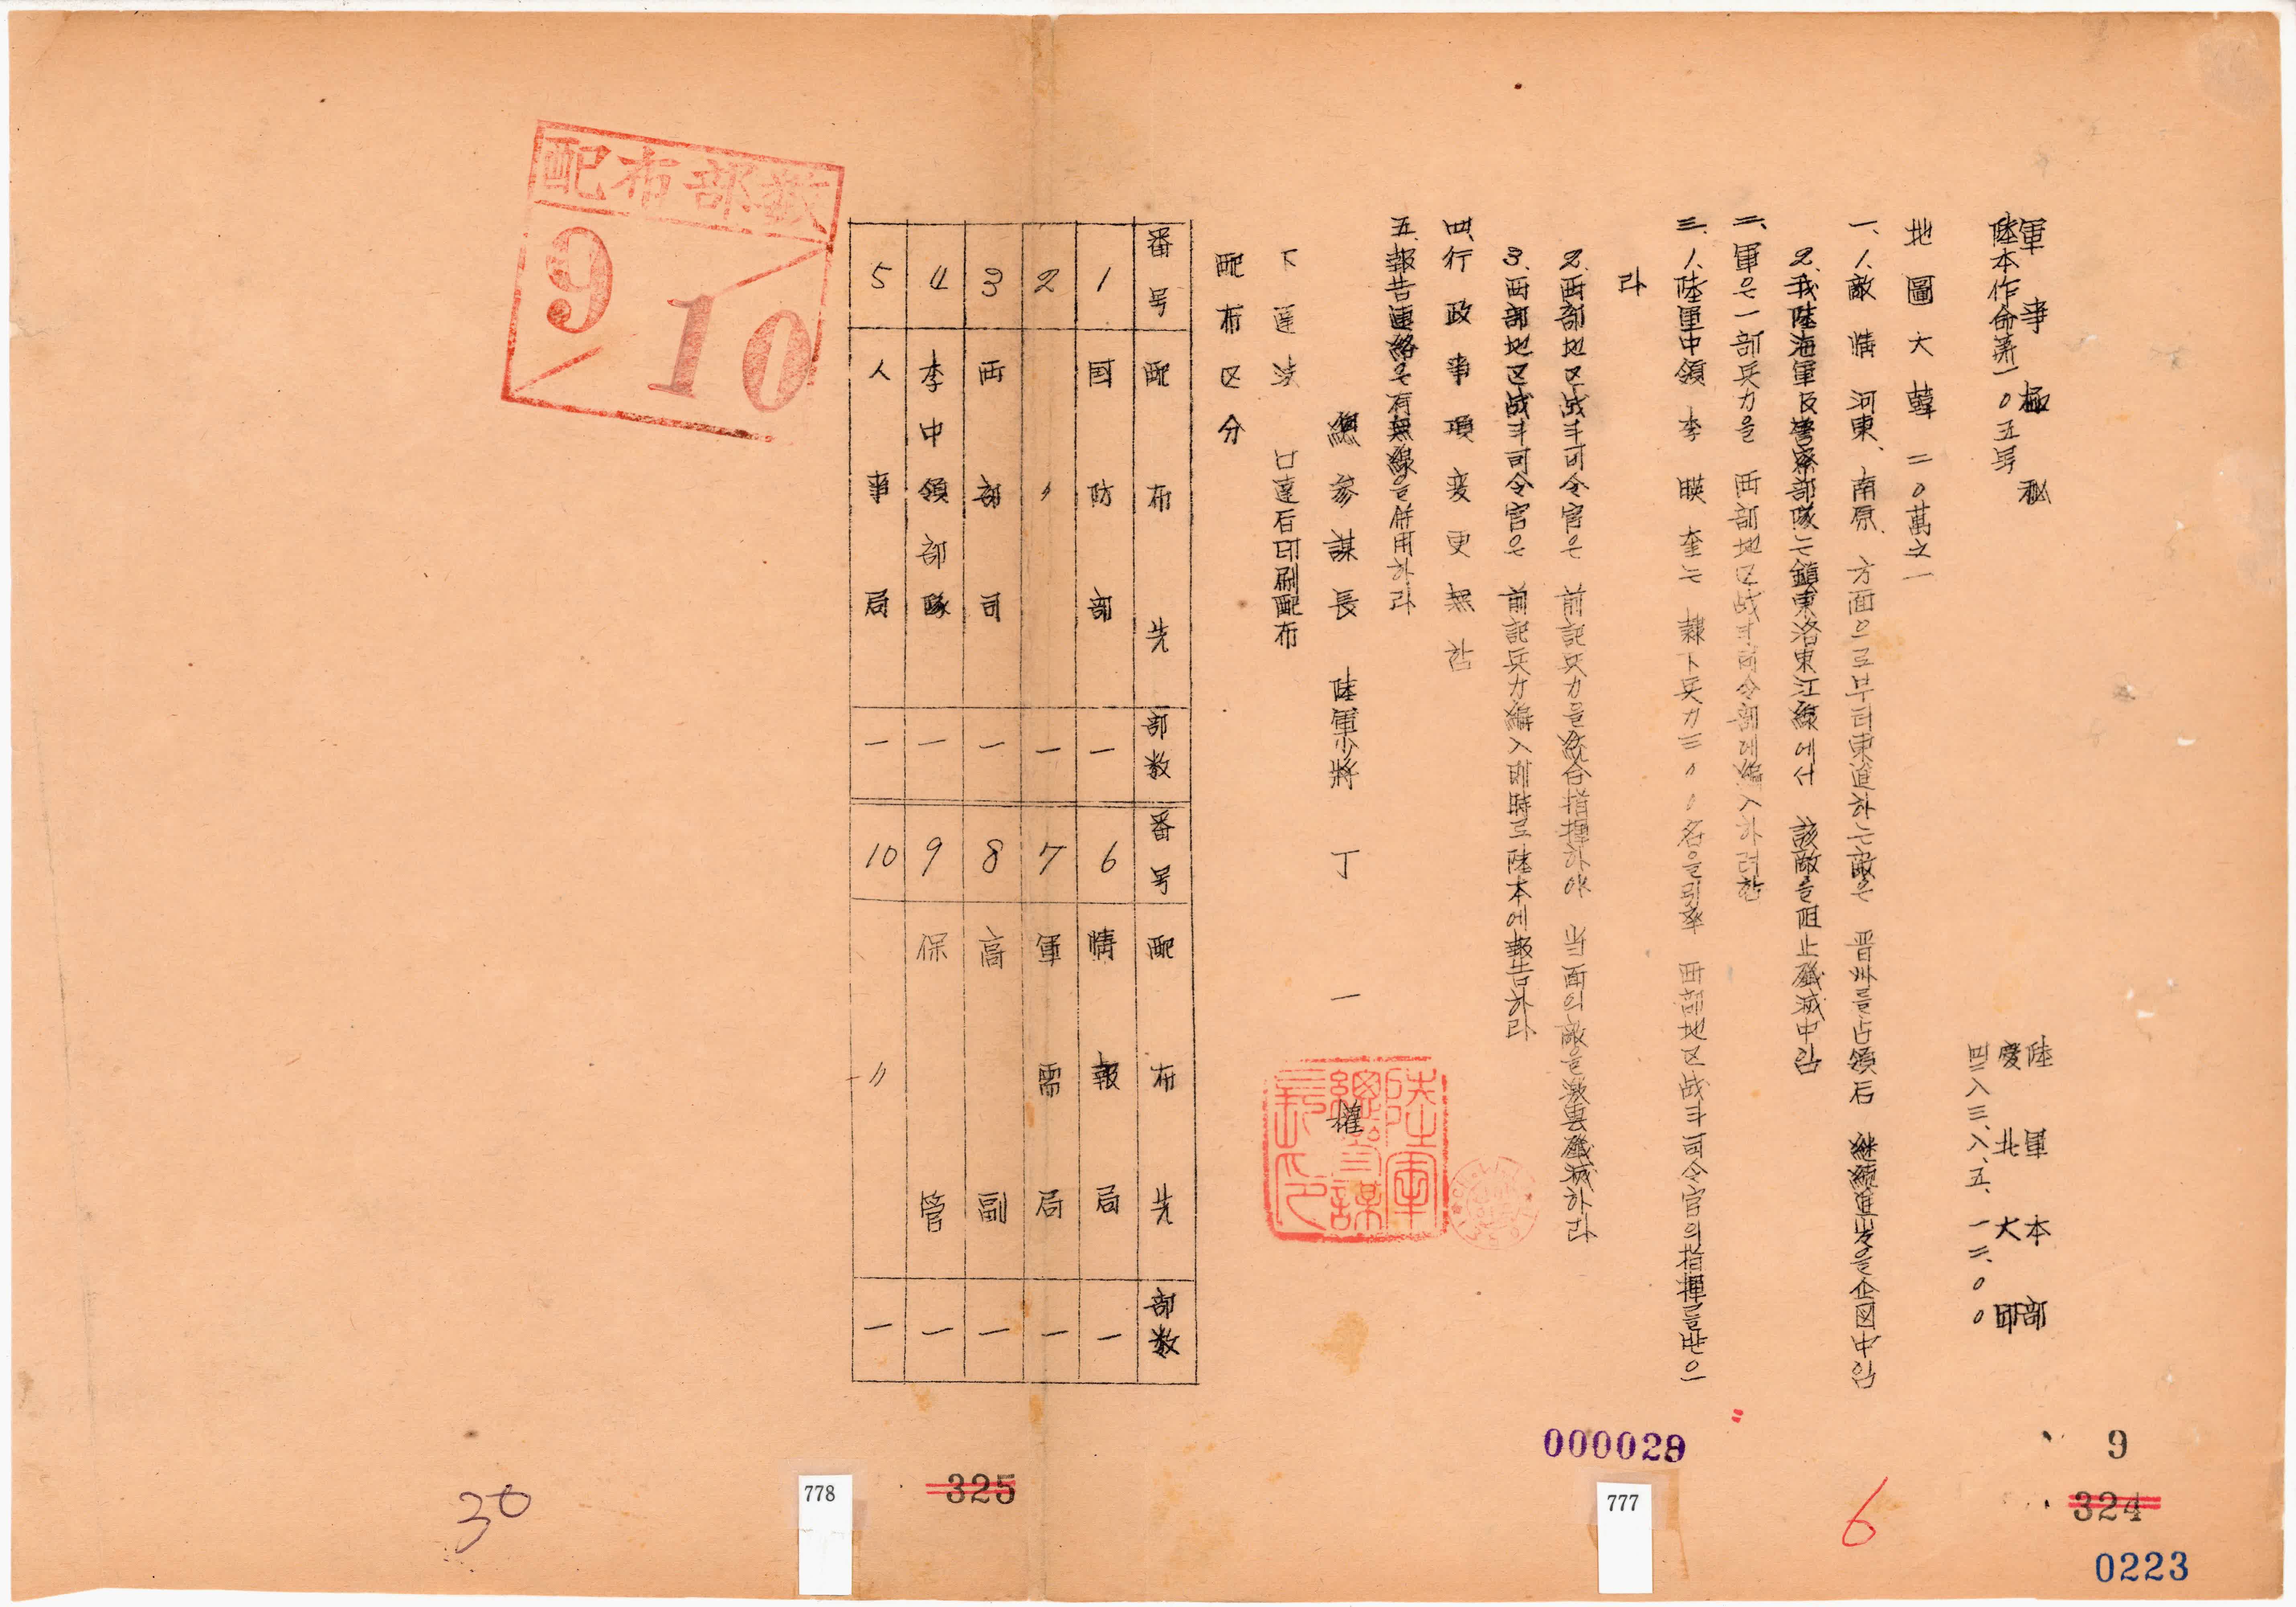 軍事極秘
陸軍本部
陸本作命第一〇五号
慶北大邱
四二八三、八、五、一二、〇〇
地圖大韓二〇萬之一
一、1、敵情 河東、南原、方面으로부터東進하는敵은 晋州를占領后 継続進出을企図中임
2、我陸海軍及警察部隊는鎮東洛東江線에서 該敵을阻止殲滅中임
二、軍은一部兵力을 西部地区战斗司令部에編入하려함
三、1、陸軍中領 李暎奎는 隷下兵力三〇〇名을引率 西部地区战斗司令官의指揮를받으
라
2、西部地区战斗司令官은 前記兵力을統合指揮하야 当面의敵을激"殲滅하라
3、西部地区战斗司令官은 前記兵力編入即時로陸本에報告하라
四、行政事項変更無함
五、報告連絡은有無線을併用하라
總參謀長 陸軍少將 丁一權
陸軍總參謀長印
下達法 口達后印刷配布
配布区分
番号 配布先 部数 番号 配布先 部数
1 国防部 一 6 情報局 一
2 〃 一 7 軍需局 一
3 西部司 一 8 高副 一
4 李中領部隊 一 9 保管 一
5 人事局 一 10 〃 一
配布部數
9/10
000029
9
324
325
777
778
6
30
0223